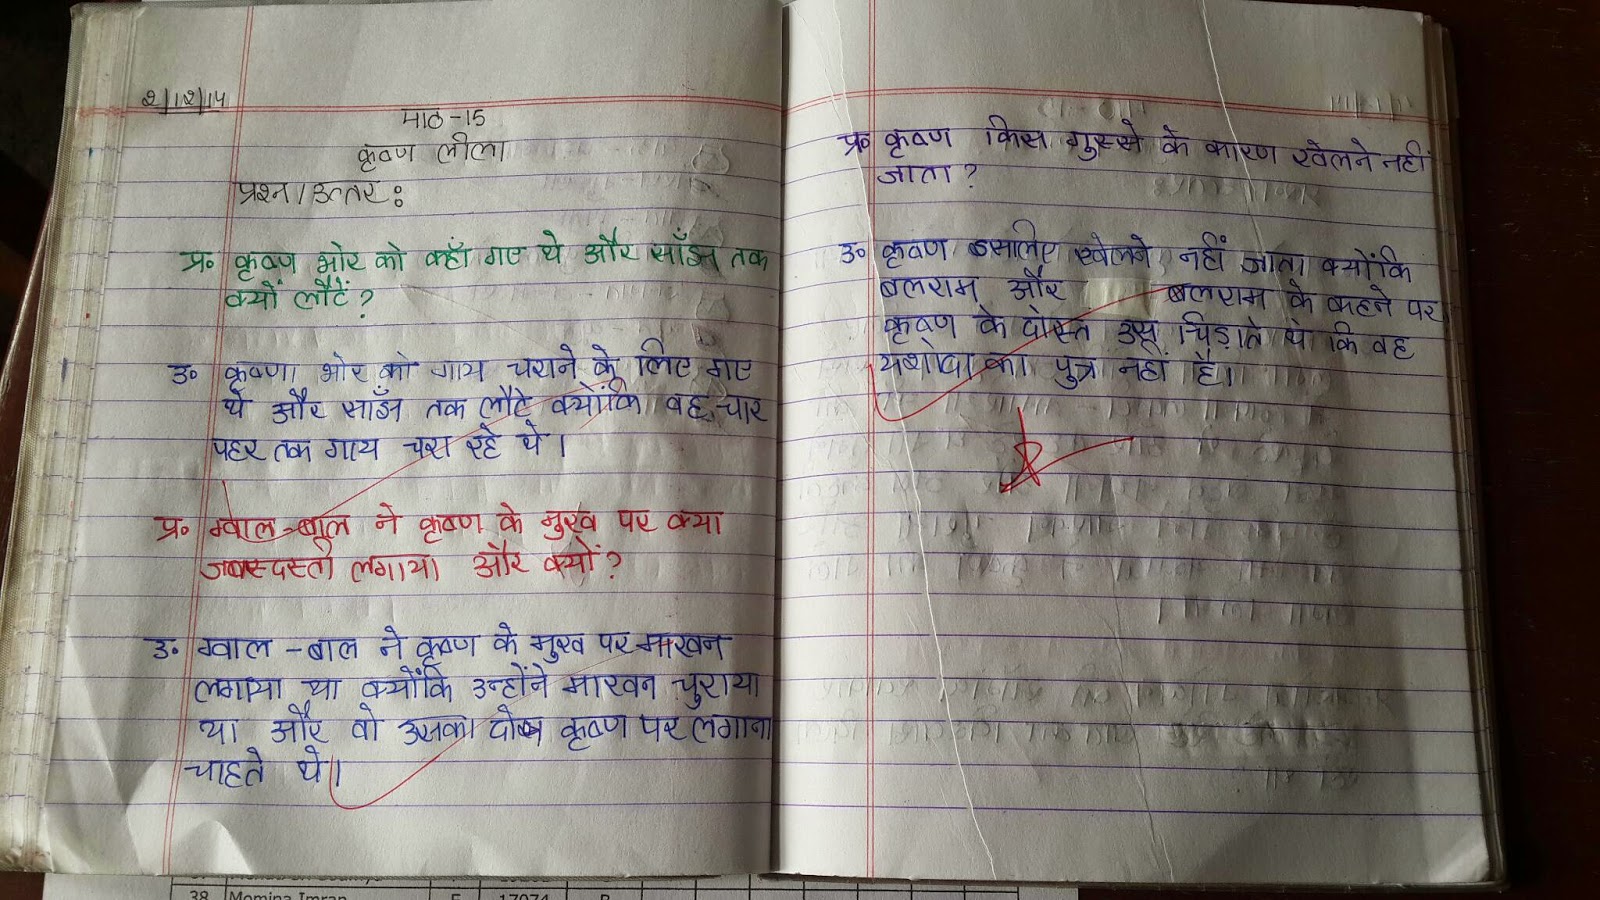 2/12/14
पाठ -15
कृष्ण लीला
प्रश्न/उत्तर:
प्र॰ कृष्ण भोर को कहाँ गए थे और साँझ तक
क्यों लौटें?
उ॰ कृष्णा भोर को गाय चराने के लिए गए
थे और साँझ तक लौटे क्योंकि वह चार
पहर तक गाय चरा रहे थे।
प्र॰ ग्वाल-बाल ने कृष्ण के मुख पर क्या
जबरदस्ती लगाया और क्यों?
उ॰ ग्वाल-बाल ने कृष्ण के मुख पर माखन
लगाया था क्योंकि उन्होंने माखन चुराया
था और वो उसका दोष कृष्ण पर लगाना
चाहते थे।
प्र॰ कृष्ण किस गुस्से के कारण खेलने नहीं
जाता?
उ॰ कृष्ण इसलिए खेलने नहीं जाता क्योंकि
बलराम और बलराम के कहने पर
कृष्ण के दोस्त उसे चिड़ाते थे कि वह
यशोदा का पुत्र नहीं है।
38 Momina Imran F 17074